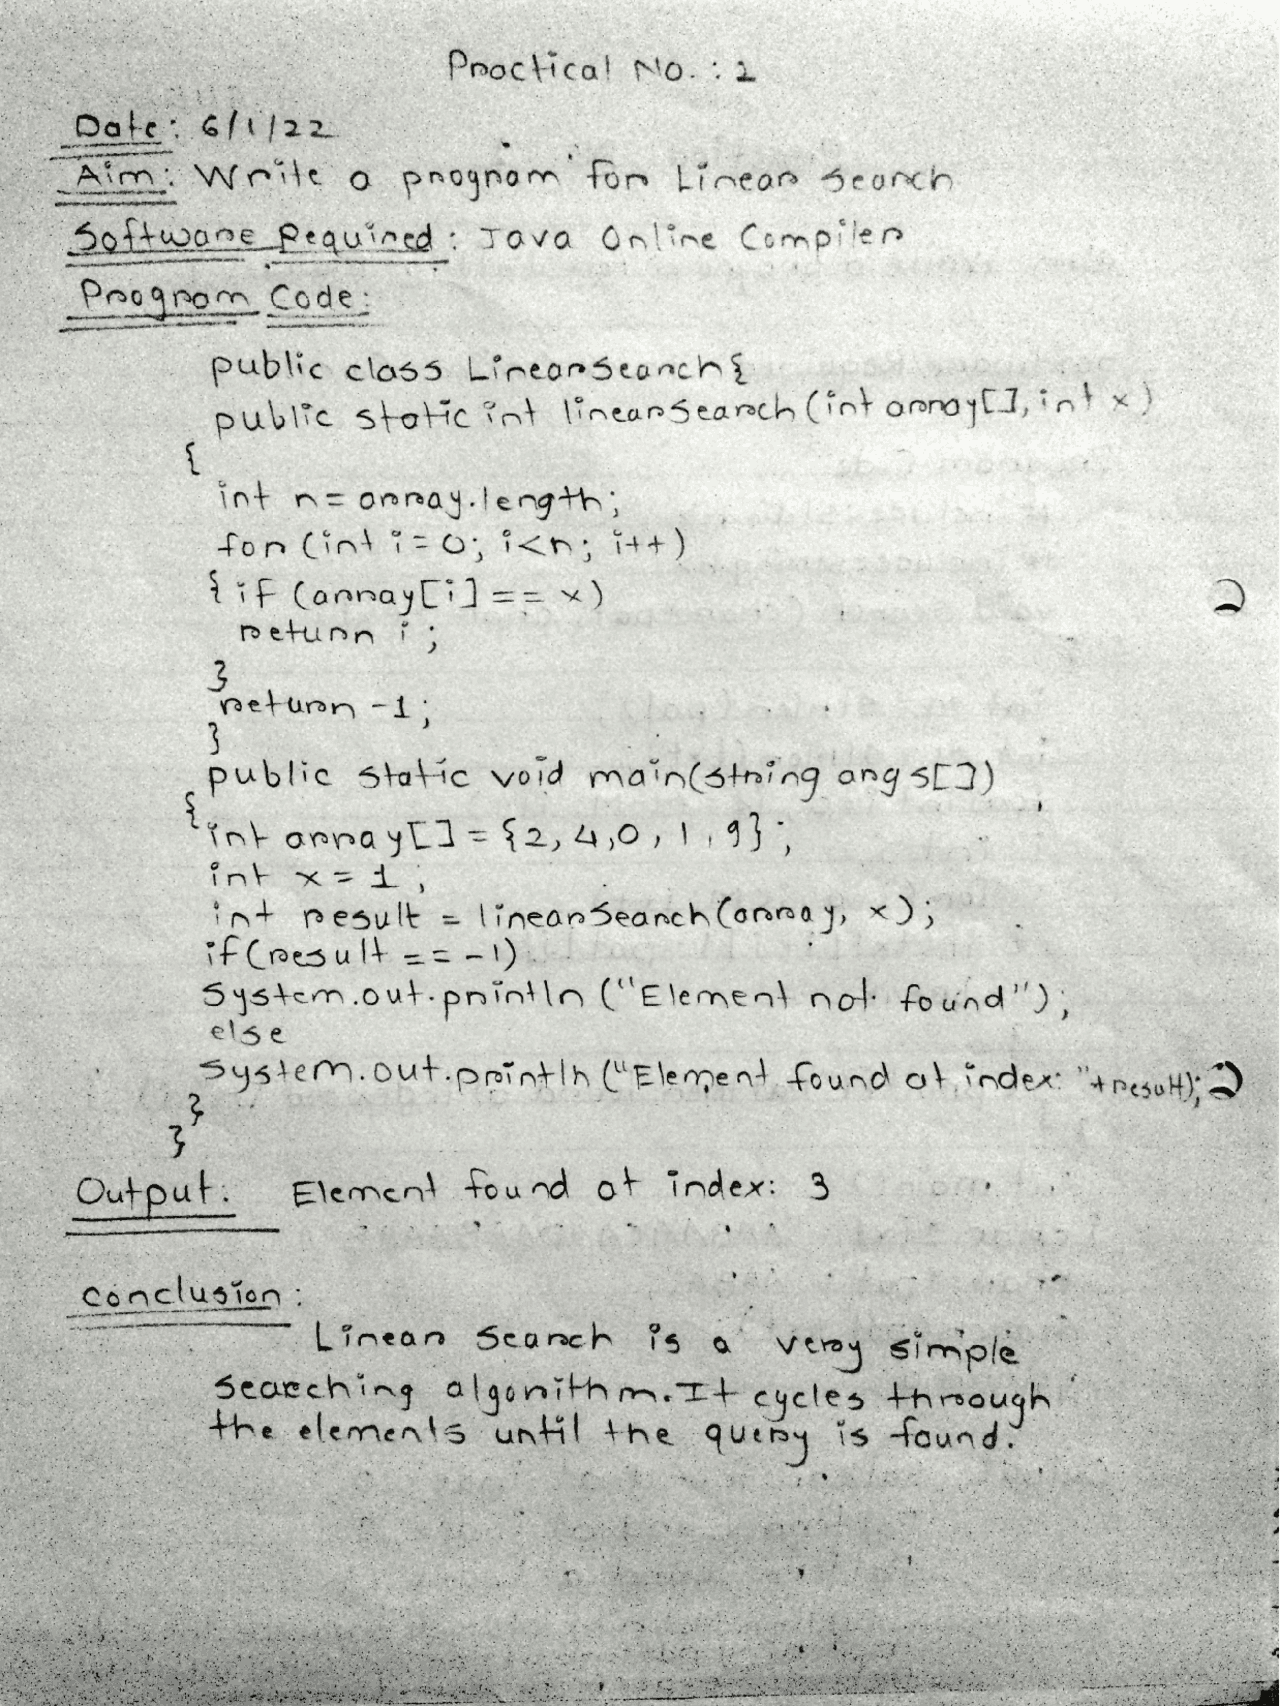 Practical No. : 2
Date: 6/1/22
Aim: Write a program for Linear Search
Software Required: Java Online Compiler
Program Code:
public class LinearSearch{
public static int linearSearch(int array[], int x)
{
int n= array.length;
for (int i=0; i<n; i++)
{ if (array[i] == x)
return i;
}
return -1;
}
public static void main(string args[])
{
int array[] = {2, 4,0, 1, 9};
int x = 1;
int result = linearSearch(array, x);
if(result == -1)
System.out.println ("Element not found");
else
System.out.println ("Element found at index: "+result);
}
}
Output: Element found at index: 3
Conclusion:
Linear Search is a very simple
searching algorithm. It cycles through
the elements until the query is found.